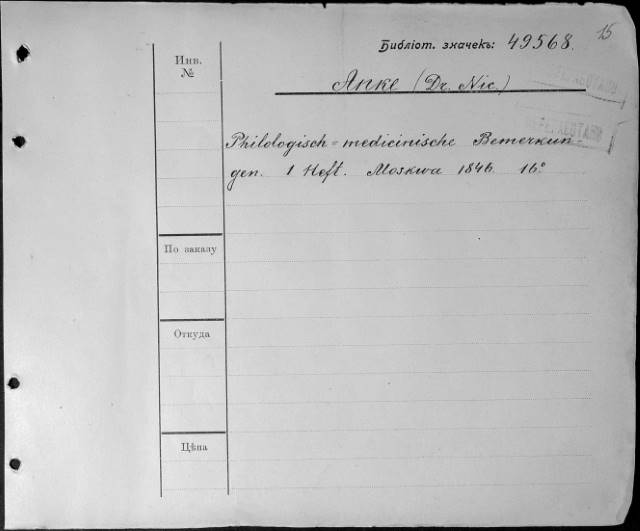 15
Библіот. значекъ: 49568.
Инв.
№
Anke (Dr. Nic.)
Philologisch-medicinische Bemerkun-
gen. 1 Heft. Moskwa 1846. 16°
По заказу
Откуда
Цѣна